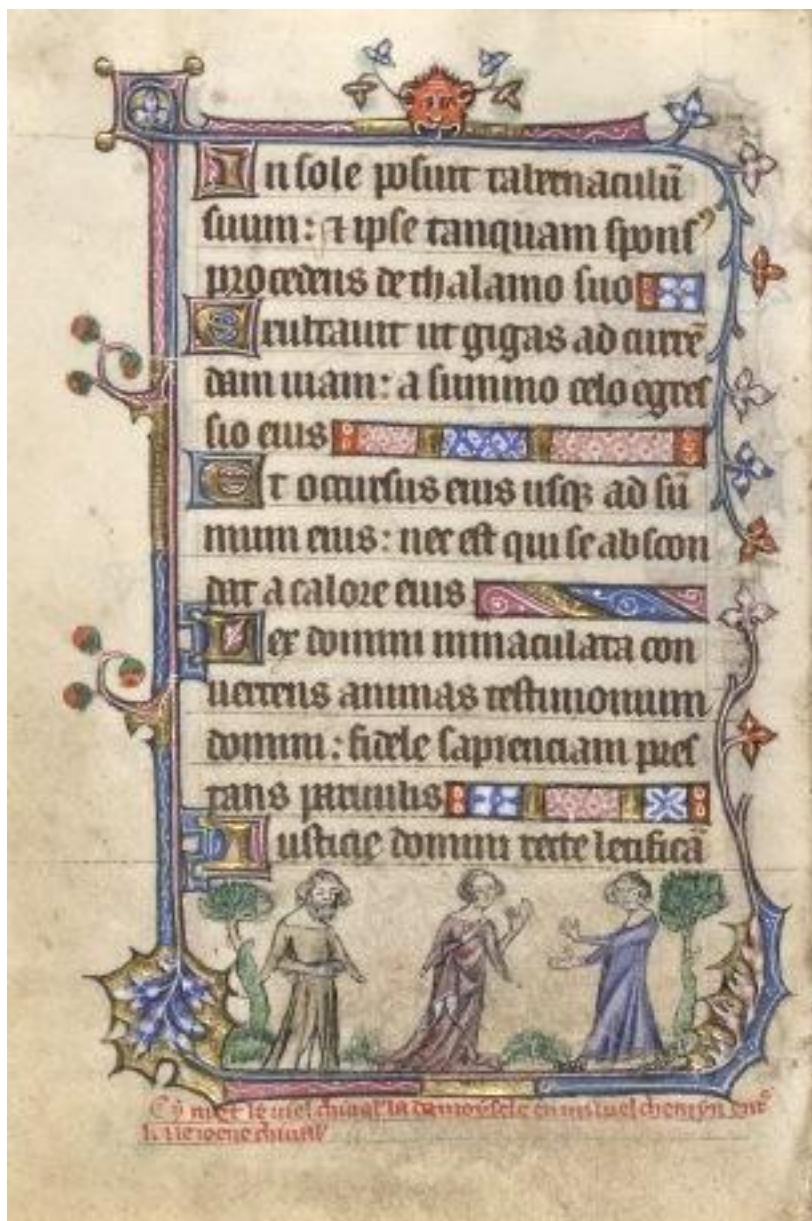 In sole posuit tabernaculū
suum: et ipse tanquam spons9
procedens de thalamo suo
Exultauit ut gigas ad currē
dam uiam: a summo celo egres
sio eius
Et occursus eius usqȝ ad sū
mum eius: nec est qui se abscon
dat a calore eius
Lex domini immaculata con
uertens animas testimonium
domini: fidele sapienciam pres
tans paruulis
Iusticie domini recte letificā
Cy met le uiel la damoysele en chemyn